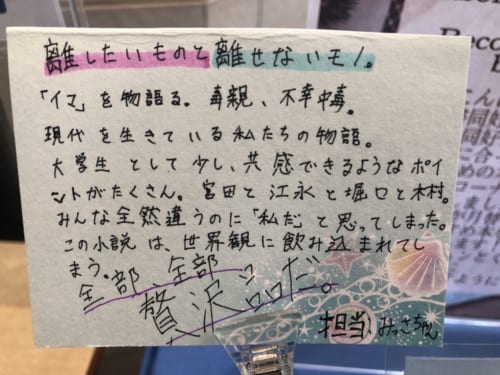 離したいものと離せないモノ。
「イマ」を物語る。毒親、不幸中毒。
現代を生きている私たちの物語。
大学生として少し、共感できるようなポイ
ントがたくさん。宮田と江永と堀口と木村。
みんな全然違うのに「私だ」と思ってしまった。
この小説は、世界観に飲み込まれてし
まう。
全部、全部
贅沢品だ。
担当、みっさちゃん